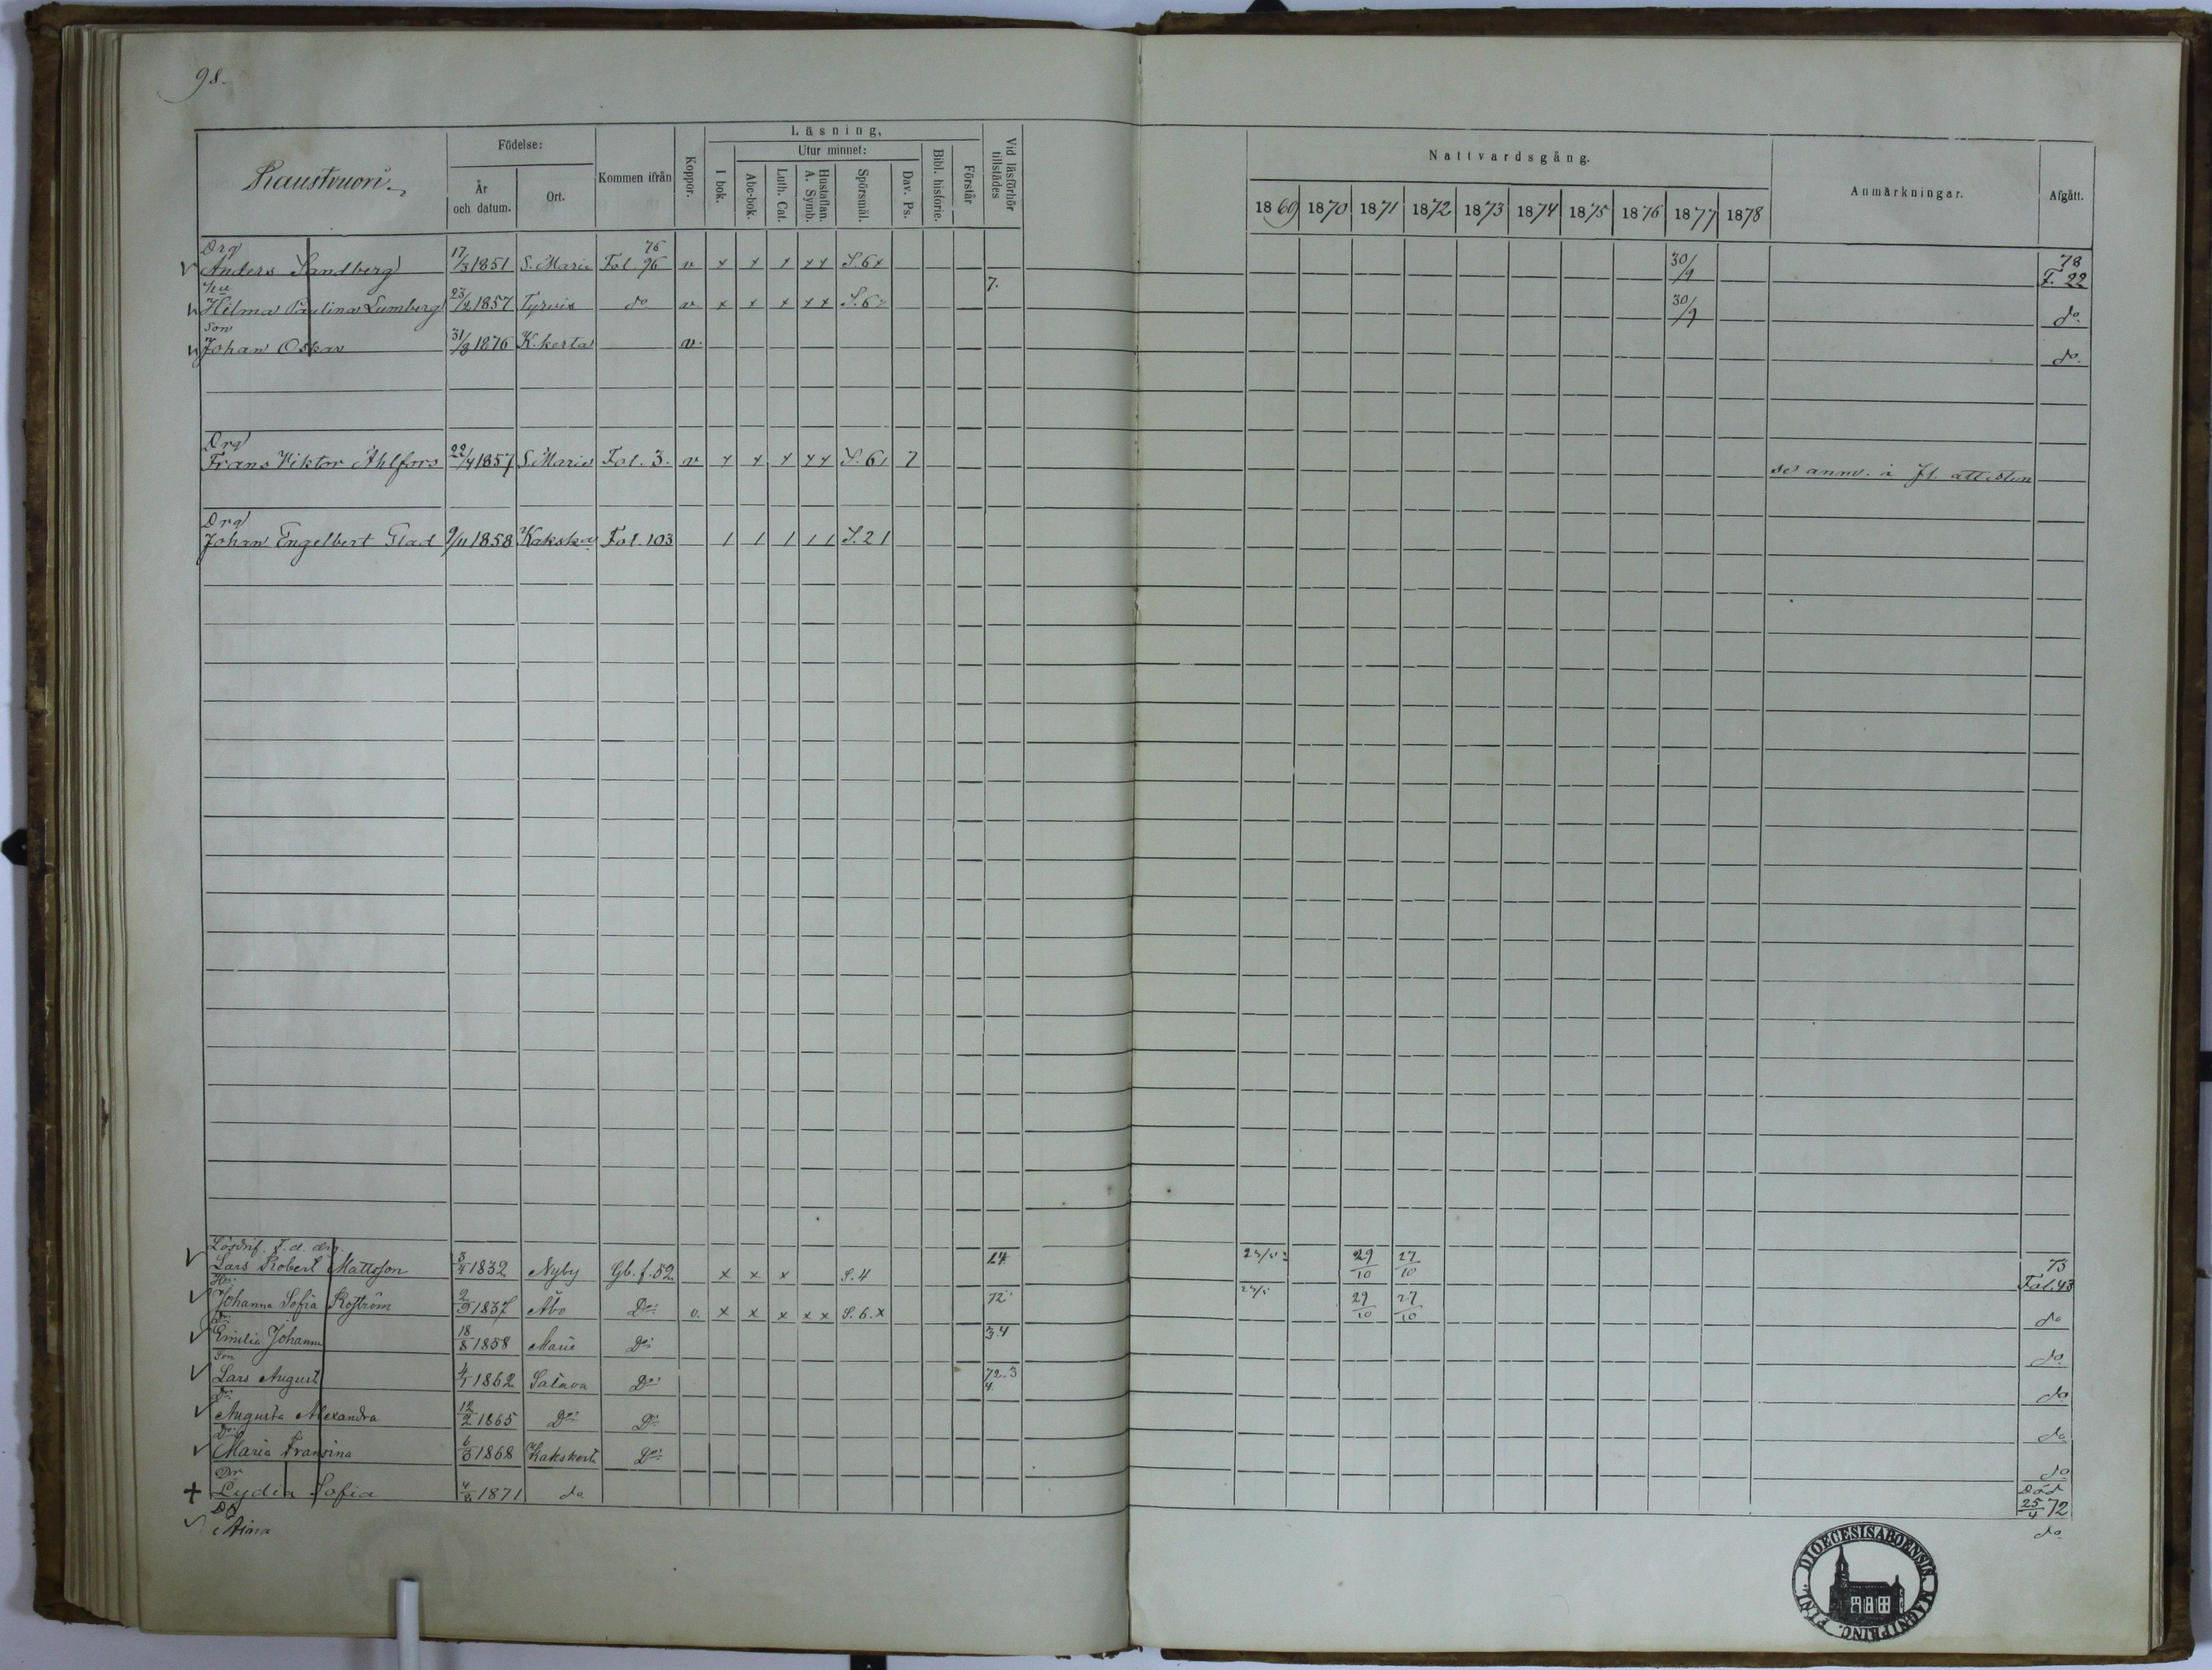 98.
Födelse:
Läsning,
Utur minnet:
Nattvardsgång.
År och datum.
Ort.
Kommen ifrån
Koppor.
I bok.
Abc-bok.
Luth. Cat.
Hustaflan. A. Symb.
Spörsmål.
Dav. Ps.
Bibl. historie.
Förstår
Vid läsförhör tillstädes
1869 1870 1871 1872 1873 1874 1875 1876 1877 1878
Anmärkningar.
Afgått.
Drg
Anders Sandberg 17/3 1851 S. Marie Fol. 96 76 v x x x x x S.6x 30/9 78 F. 22
hu 7.
Hilma Paulina Lumberg 23/2 1857 Tyrvis do v x x x x x S.6 30/9 do.
Son
Johan Oskar 31/8 1876 K.kerta v. do.
Drg
Frans Viktor Ahlfors 22/4 1857 S. Marie Fol. 3. v x x x x x S.6 7 se anm. i Fl. attesten
Drg
Johan Engelbert Glad 9/11 1858 Kakska Fol. 103 1 1 1 1 1 S.2 1
Lösdrif. F.d. drg.
Lars Robert Mattsson 1832 Nyby Gb. f. 52 x x x S.4 29/10 27/10 73 Fol. 43
Hu:
Johanna Sofia 1837 Åbo Do: v. x x x x x S.6.x 72 29/10 27/10 do
Dr:
Emilia Johanna 18/8 1858 Marie Do: 3.4 do
Son
Lars August 1862 Satava Do: 72.3 4. do
Dr:
Augusta Alexandra 12/2 1865 Do: Do: do
Dr:
Maria Fransina 6/3 1868 Kakskerta Do: do
Dr
Lydia Sofia 4/8 1871 do Död 25/4 72
Dr
Aina do
FINL. DIOECESIS ABOENSIS. MAGNI PRINC.